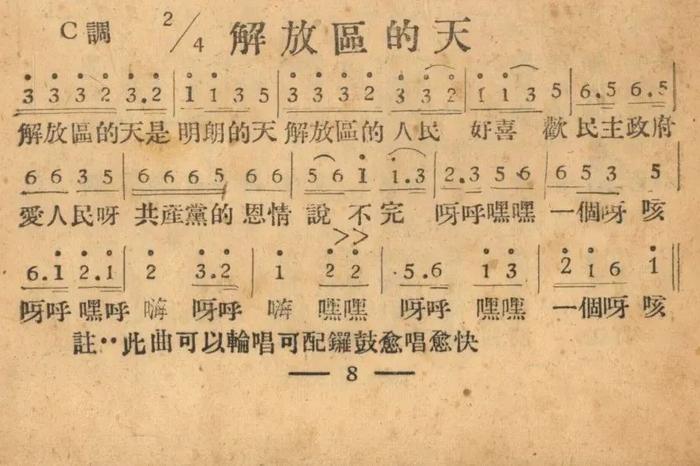 C調 2/4 解放區的天
3 3 3 2 3.2 | 1 1 3 5 | 3 3 3 2 | 3 3 2 | 1 1 3 5 | 6.5 6.5
解放區的天是 明朗的天 解放區的 人民 好喜 歡 民主政府
6 6 3 5 | 6 6 6 5 | 6 6 5 | 5 6 1 1.3 | 2.3 5 6 | 6 5 3 5
愛人民呀 共産黨的 恩情 說 不完 呀呼嘿嘿 一個呀 咳
>>
6.1 2.1 | 2 3.2 | 1 2 2 | 5.6 1 3 | 2 1 6 1
呀呼 嘿呼 嗨 呀呼 嗨 嘿嘿 呀呼 嘿嘿 一個呀 咳
註··此曲可以輪唱可配鑼鼓愈唱愈快
— 8 —